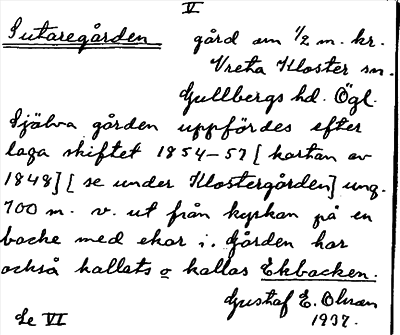 V
Sutaregården gård om 1/2 m. kr.
Vreta Kloster sn.
Gullbergs hd. Ögl.
Själva gården uppfördes efter
laga skiftet 1854–57 [kartan av
1848] [se under Klostergården] ung.
700 m. v. ut från kyrkan på en
backe med ekar i. Gården har
också kallats o kallas Ekbacken.
Gustaf E. Olsson
1937.
Se VI